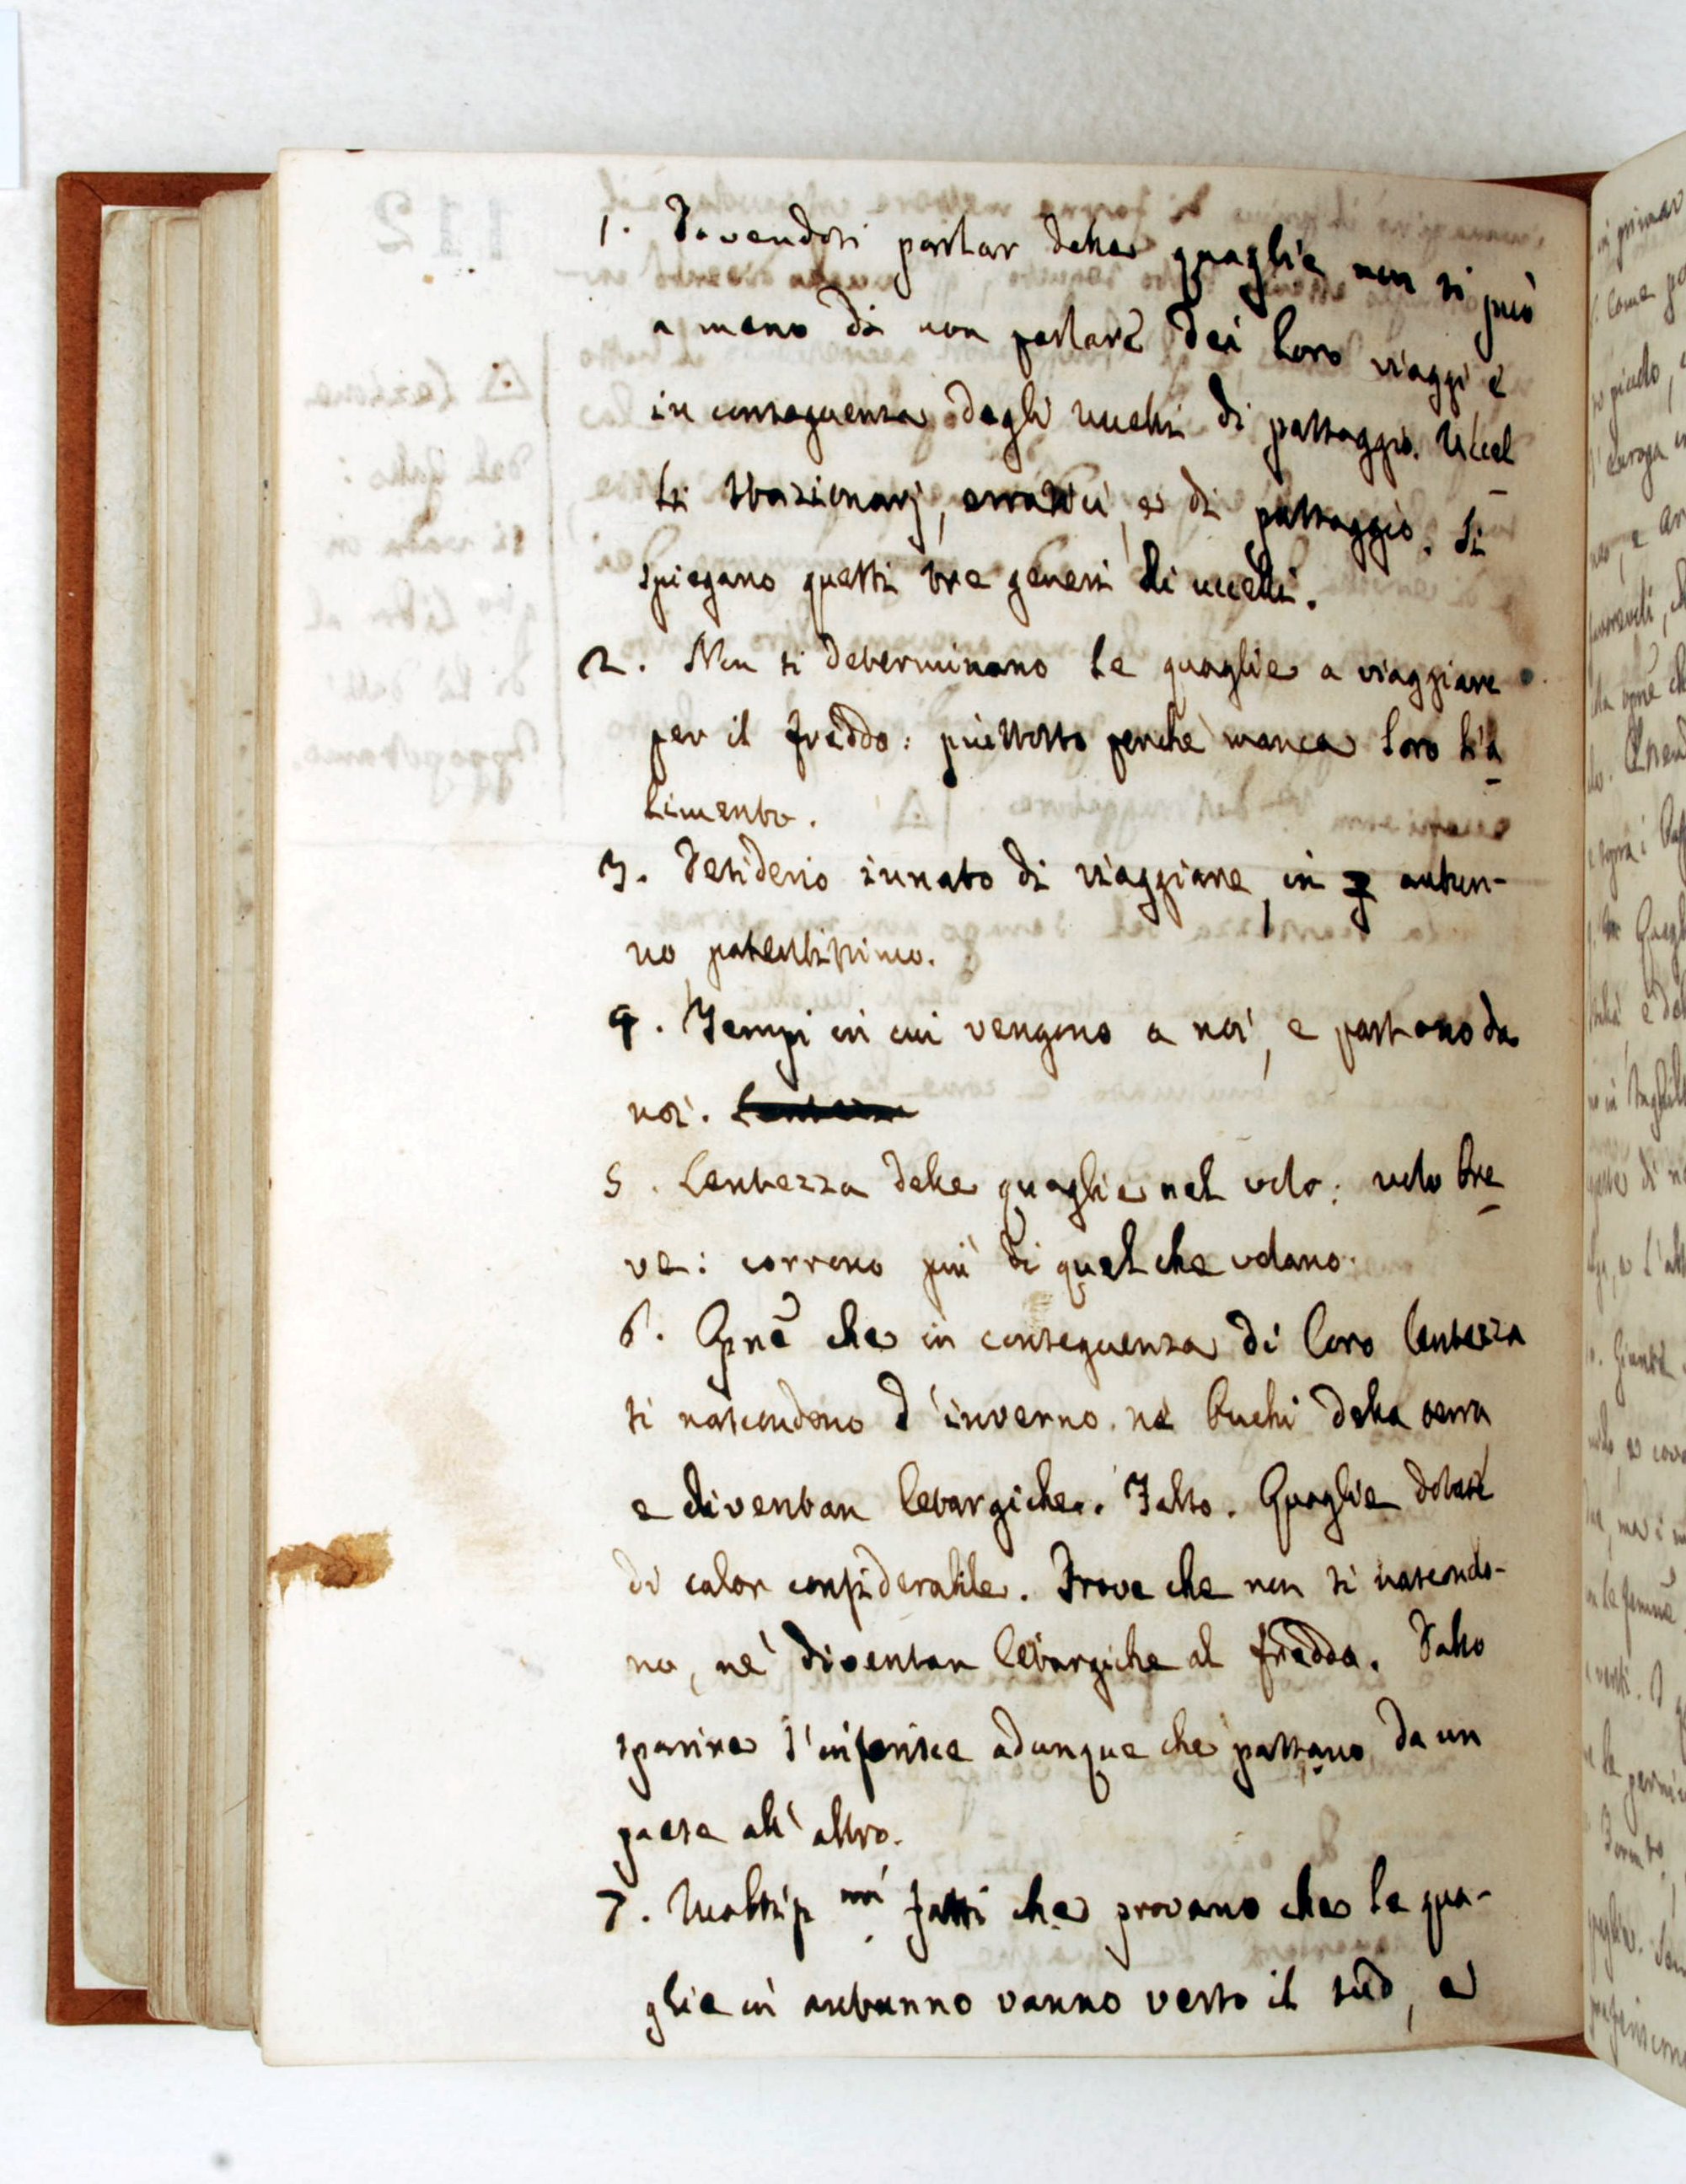 1. Dovendosi parlar delle quaglie non si può
a meno di non parlare dei loro viaggi e
in conseguenza degli uccelli di passaggio. Uccel
li stazionarj, erratici, e di passaggio. Si
spiegano questi tre generi di uccelli.
2. Non si determinano le quaglie a viaggiare
per il freddo: piuttosto perchè manca loro l'a
limento.
3. Desiderio innato di viaggiare, in autun-
no potentissimo.
4. Tempi in cui vengono a noi, e partono da
noi.
5. Lentezza delle quaglie nel volo: volo bre
ve: corrono più di quel che volano.
6. Opnē che in conseguenza di loro lentezza
si nascondono d'inverno ne buchi della terra
e diventan letargiche. Falso. Quaglie dotate
di calor considerabile. Prove che non si nascondo-
no, nè diventan letargiche al freddo. Dallo
sparire s'inferisce adunque che passano da un
paese all'altro.
7. Moltip mi fatti che provano che le qua-
glie in autunno vanno verso il sud, e